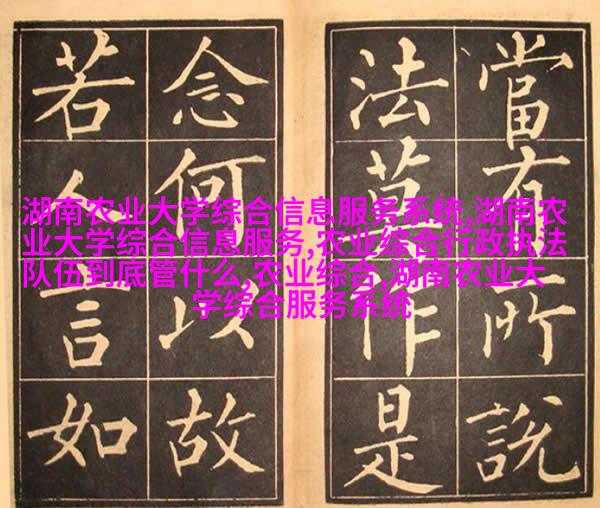 當有所說
法莫作是
念何以故
若人言如
湖南农业大学综合信息服务系统,湖南农
业大学综合信息服务,农业综合行政执法
队伍到底管什么,农业综合,湖南农业大
学综合服务系统